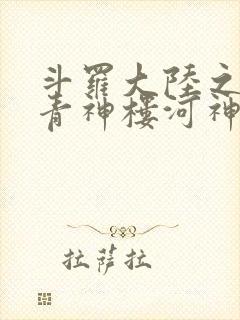 斗羅大陸之
青神樓河神
拉薩拉